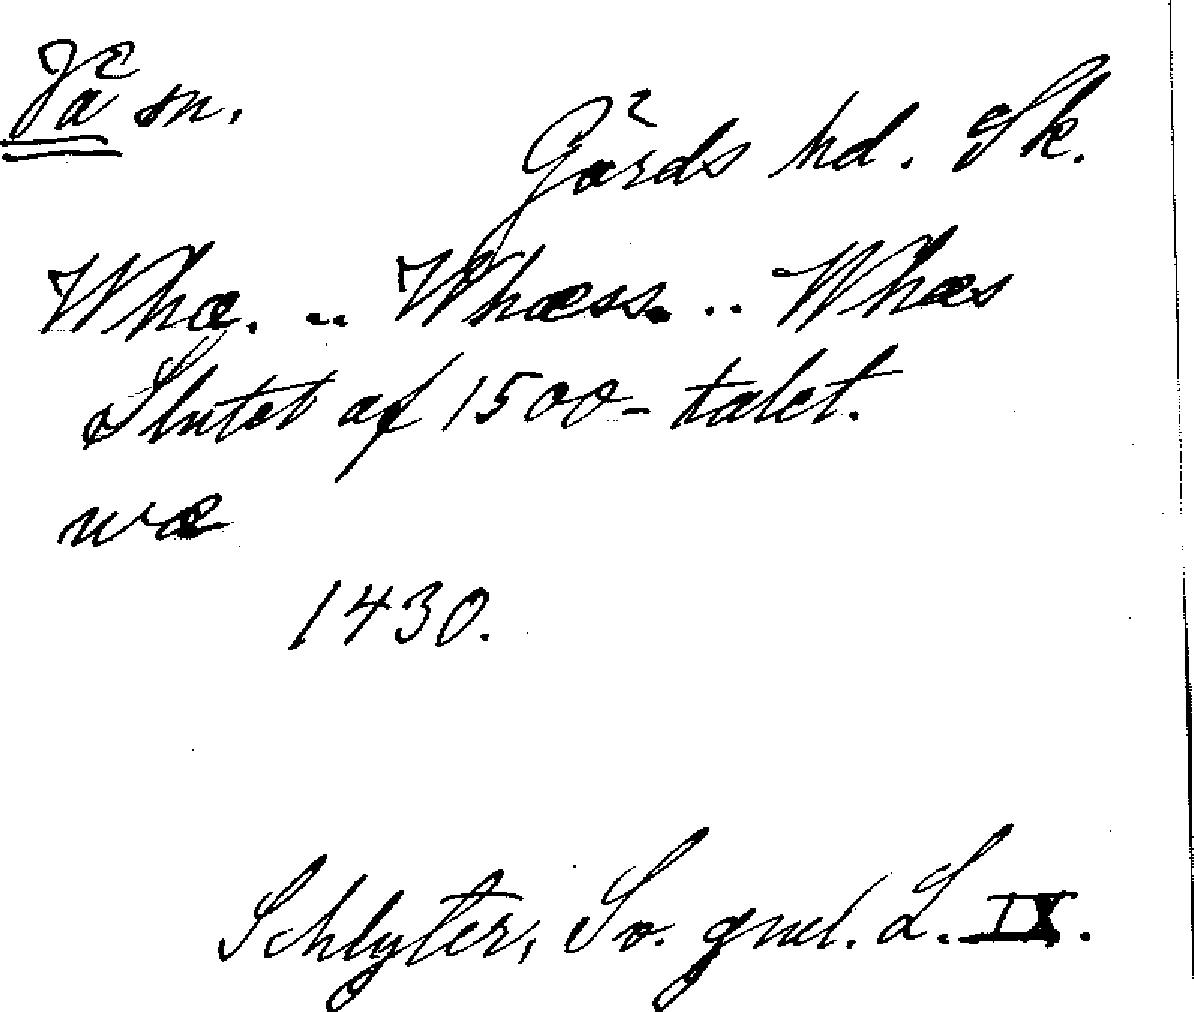 Vä sn.
Gärds hd. Sk.
Whæ. .. Whæss. .. Whæs
Slutet af 1500-talet.
wæ
1430.
Schlyter, Sv. gml. L. IX.